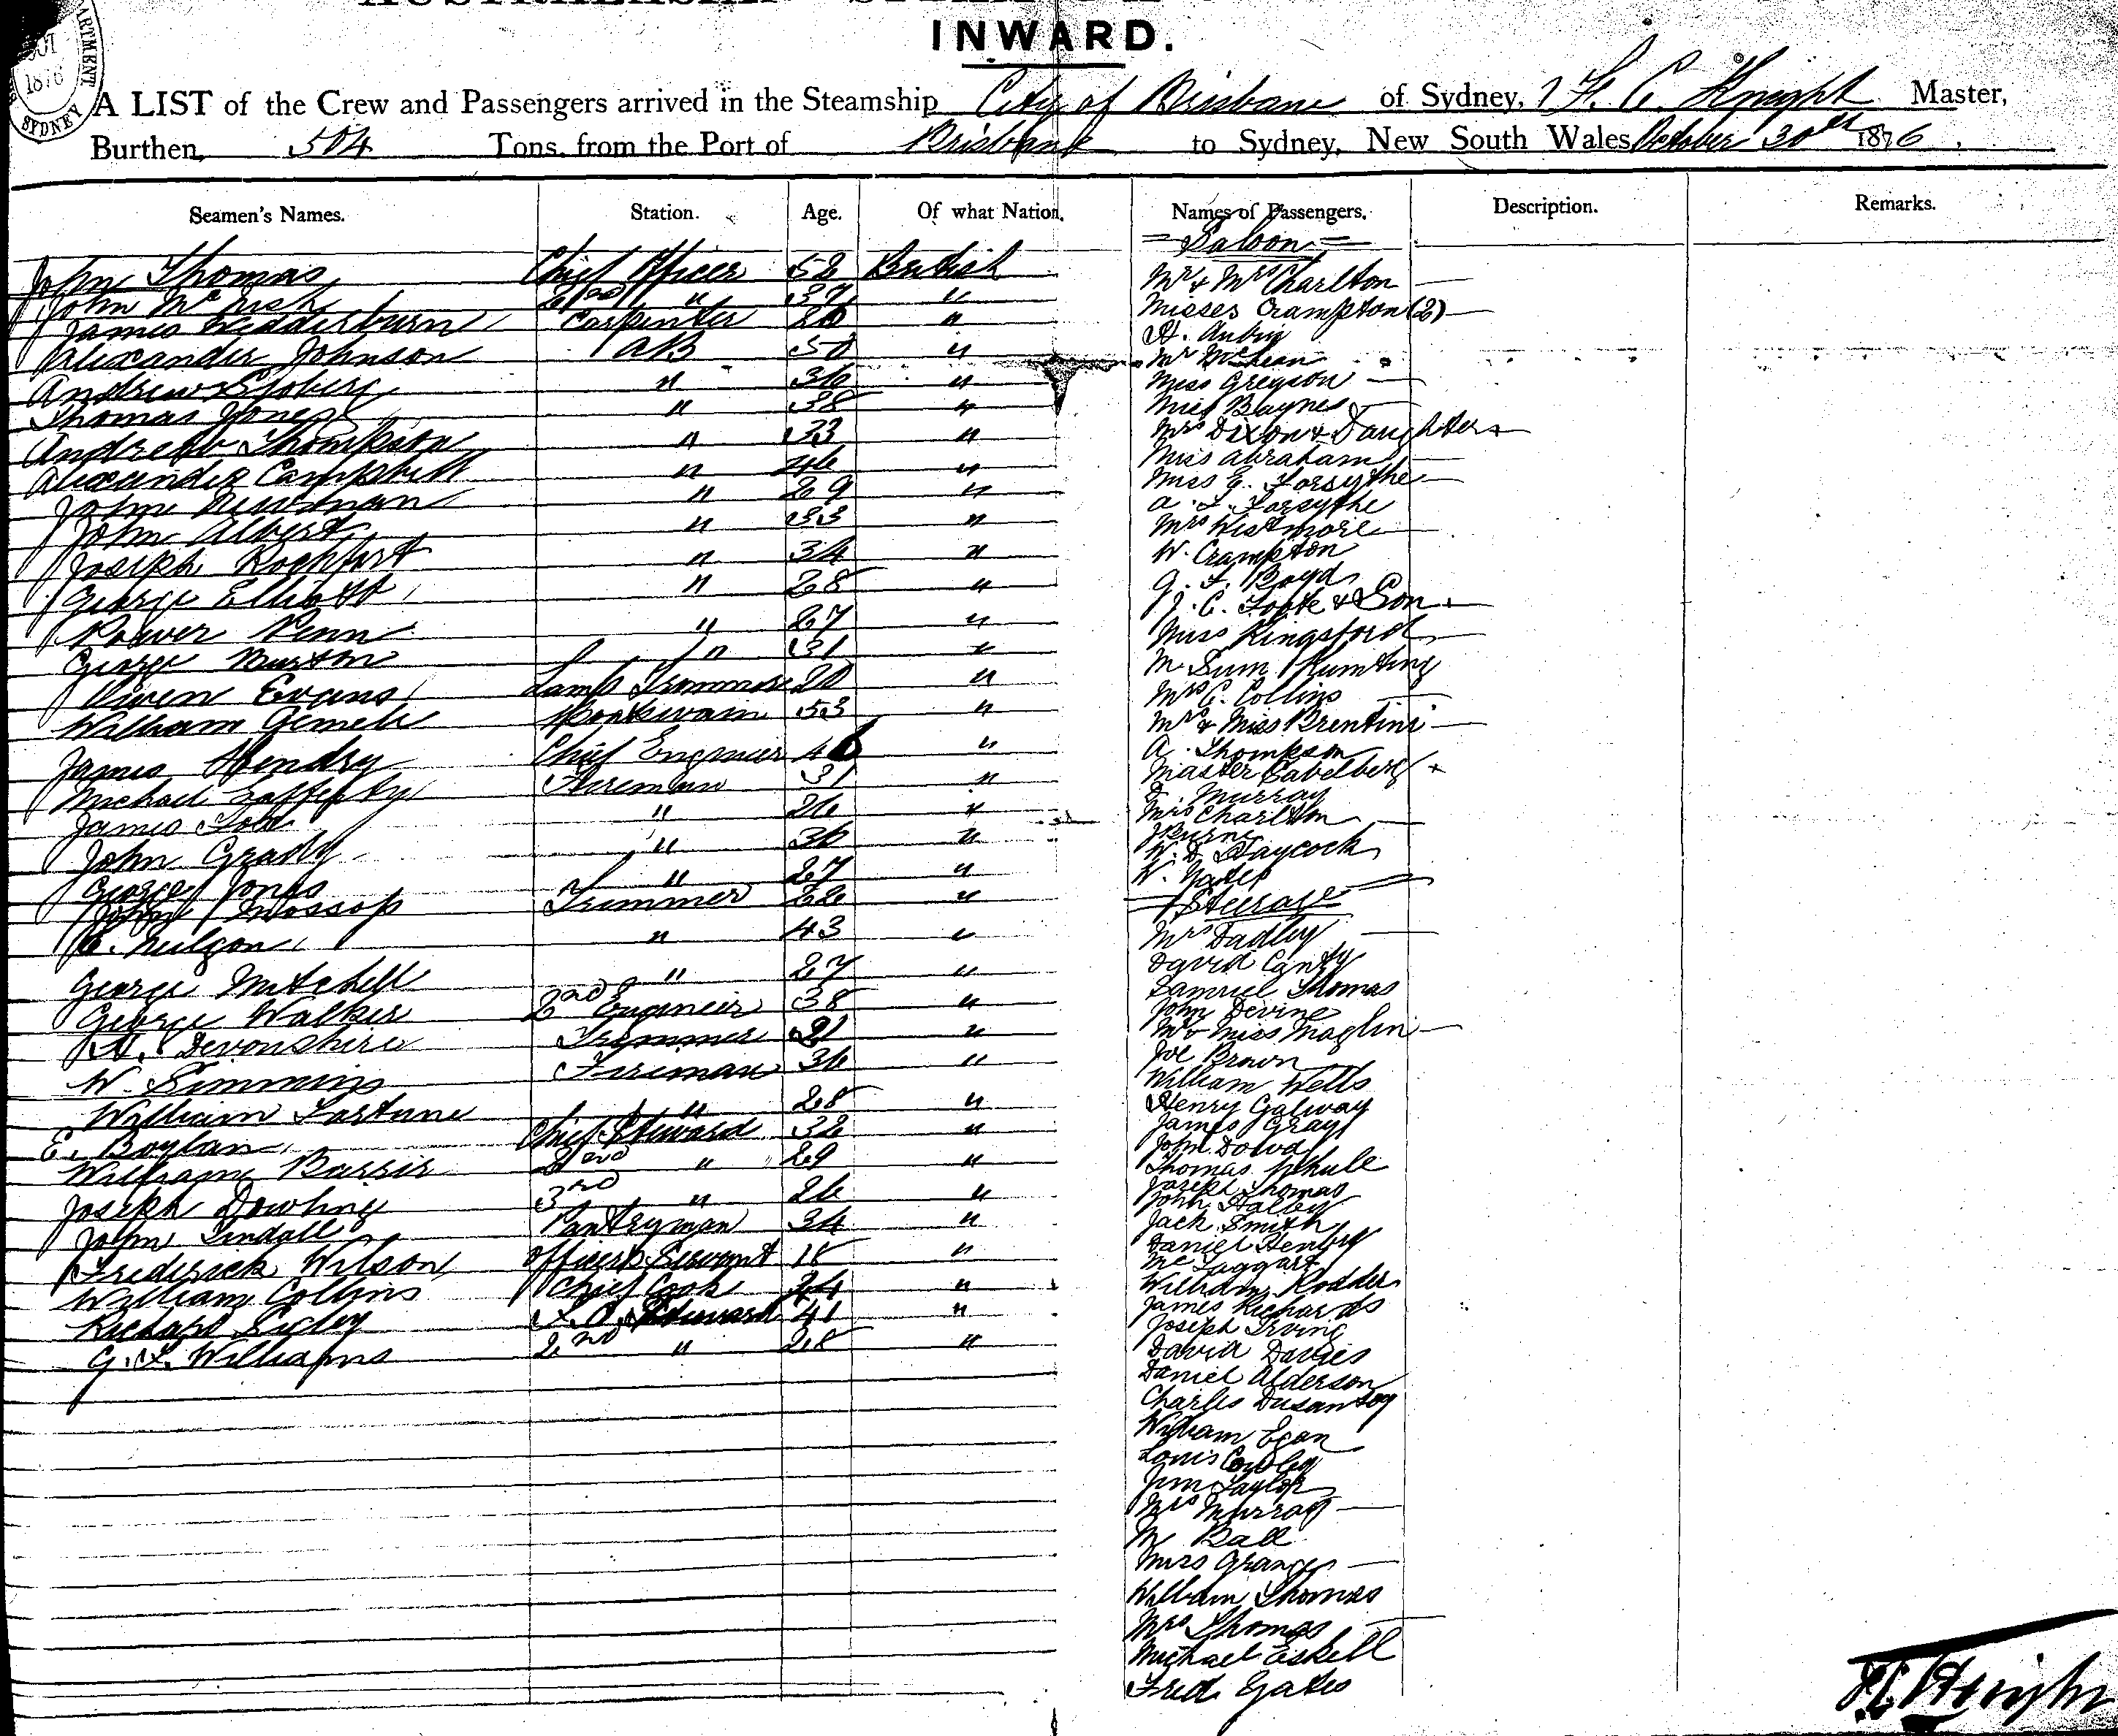 INWARD.
A LIST of the Crew and Passengers arrived in the Steamship City of Brisbane of Sydney, Knight Master,
Burthen, 504 Tons, from the Port of Brisbane to Sydney, New South Wales October 30th 1876.
Seamen's Names. Station. Age. Of what Nation. Names of Passengers. Description. Remarks.
= Saloon =
John Thomas Chief Officer 52 British Mr & Mrs Charlton
John 2nd " 37 " Misses Crampton (2)
James Wedderburn Carpenter " H. Aubin
Alexander Johnson AB 50 " Mr McLean
Andrew " 36 " Miss Gregson
Thomas Jones " 38 " Miss Baynes
Andrew Thompson " 33 " Mrs Dixon & Daughters
Alexander Campbell " 46 " Miss Abraham
John Newman " 29 " Miss E. Forsythe
John Albert " 33 " A. L. Forsythe
Joseph Rochfort " 34 " Mrs Westmore
George Elliott " 28 " W. Crampton
Penn " 27 " G. F. Boyd
George Burton " 31 " J. C. Foote & Son
Owen Evans Lamp Trimmer 20 " Miss Kingsford
William Boatswain 53 " Sum
James Hendry Chief Engineer " Mrs C. Collins
Michael Lafferty Fireman 31 " Mrs & Miss Brentini
James " 26 " A. Thompson
John Grady " 36 " Master
George Jones " 27 " D. Murray
John Mossop Trimmer " Mrs Charlton
C. Neilson " 43 " W. D. Haycock
George Mitchell " 27 " W. Yates
= Steerage =
George Walker 2nd Engineer 38 " Mrs Dadley
H. Devonshire Trimmer 21 " David Canty
W. Simmins Fireman 36 " Samuel Thomas
William Fortune " 28 " John Devine
E. Boylan Chief Steward 32 " Mr & Miss Maglin
William Barrir 2nd " 29 " Joe Brown
Joseph Dowling 3rd " 26 " William Wells
John Tindall Pantryman 34 " Henry Galway
Frederick Wilson Officers Servant 18 " James Gray
William Collins Chief Cook 24 " John
Richard Sigley Steward 41 " Thomas
G. F. Williams 2nd " 28 " Joseph Thomas
John Halley
Jack Smith
Daniel Henry
McTaggart
William Rodder
James Richards
Joseph Irving
David Davies
Daniel Alderson
Charles Dusantoy
William Egan
Louis
Jim Taylor
Mrs Murray
M Ball
Mrs Granger
William Thomas
Mrs Thomas
Michael Eskell
Fred Yates